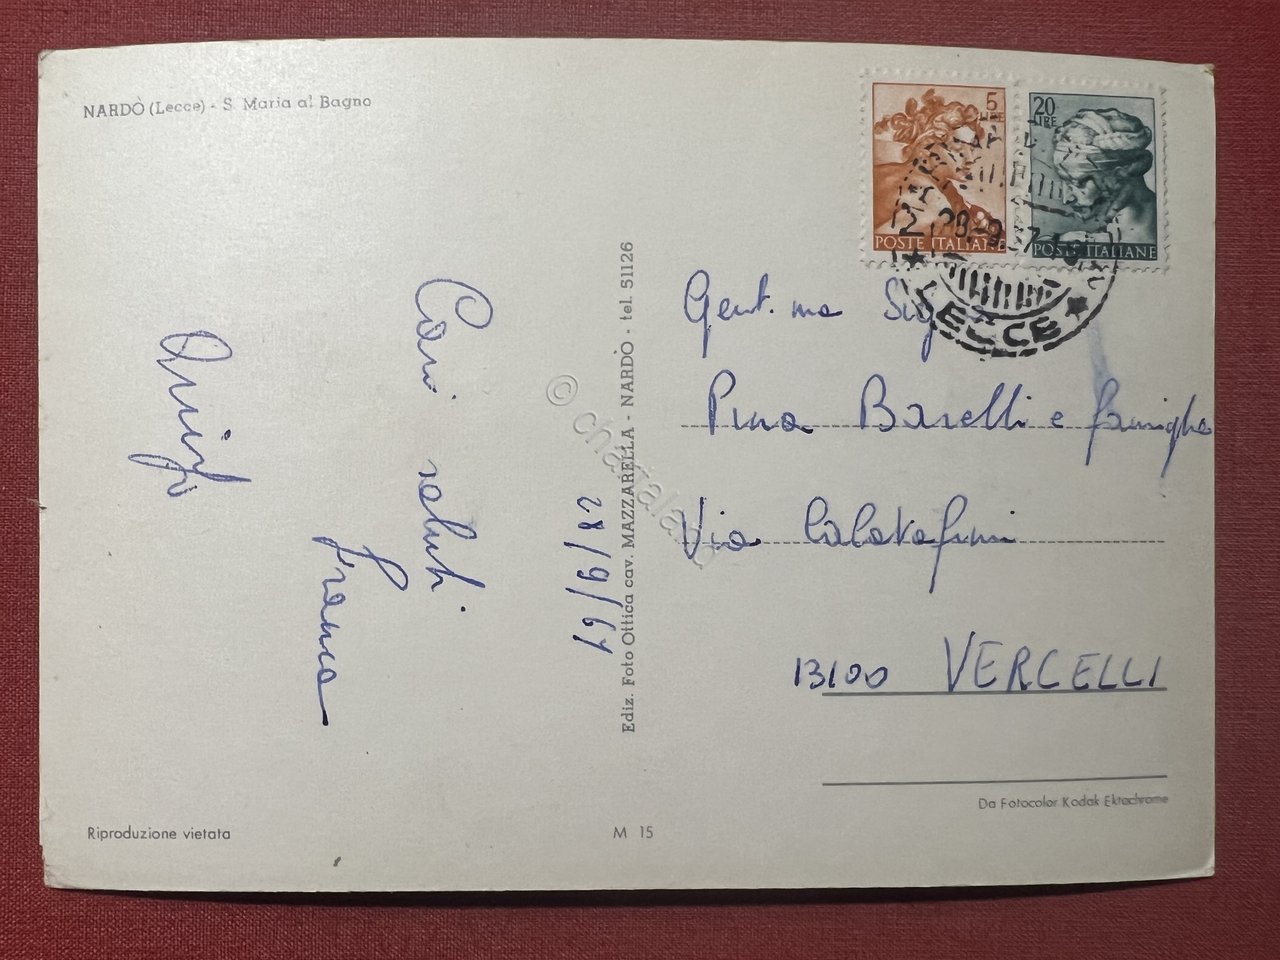 NARDÒ (Lecce) - S. Maria al Bagno
5
LIRE
POSTE ITALIANE
20
LIRE
POSTE ITALIANE
LECCE
Cari saluti
Franca
28/9/67
Ediz. Foto Ottica cav. MAZZARELLA - NARDÒ - tel. 51126
Gent.ma Sig
Pina Barelli e famiglia
Via Calatafimi
13100 VERCELLI
Da Fotocolor Kodak Ektachrome
Riproduzione vietata
M 15